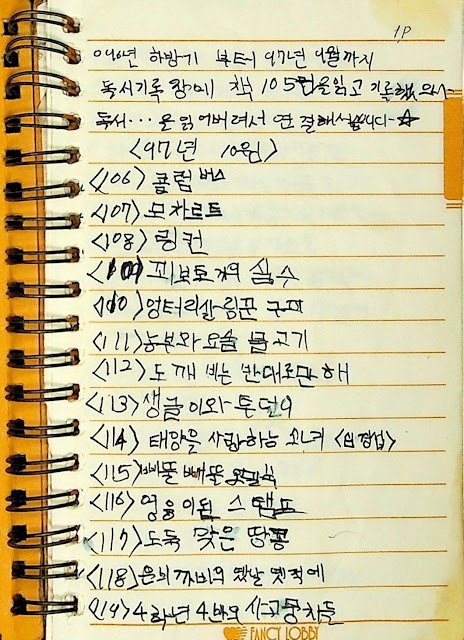 1.P
96년 하반기 부터 97년 9월까지
독서기록장에 책 105권을 읽고 기록했으나
독서... 은 잃어버려서 연결해서 씁니다-☆
<97년 10월>
<106> 콜럼버스
<107> 모차르트
<108> 링컨
<109> 꾀보토끼의 실수
<110> 엉터리살림꾼 구마
<111> 농부와 요술 물고기
<112> 도깨비는 반대로만 해
<113> 생글이와 투덜이
<114> 태양을 사랑하는 소녀 <심경섭>
<115> 삐뚤빼뚤
<116> 영웅이된 스탬프
<117> 도둑 맞은 땅콩
<118> 은비 까비의 옛날 옛적에
<119> 4학년 4반의 사고뭉치들
FANCY LOBBY